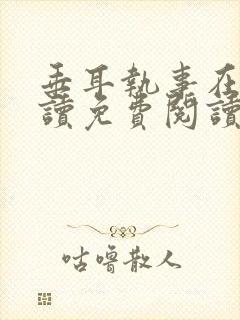 垂耳執事在
讀免費閱讀
咕嚕散人